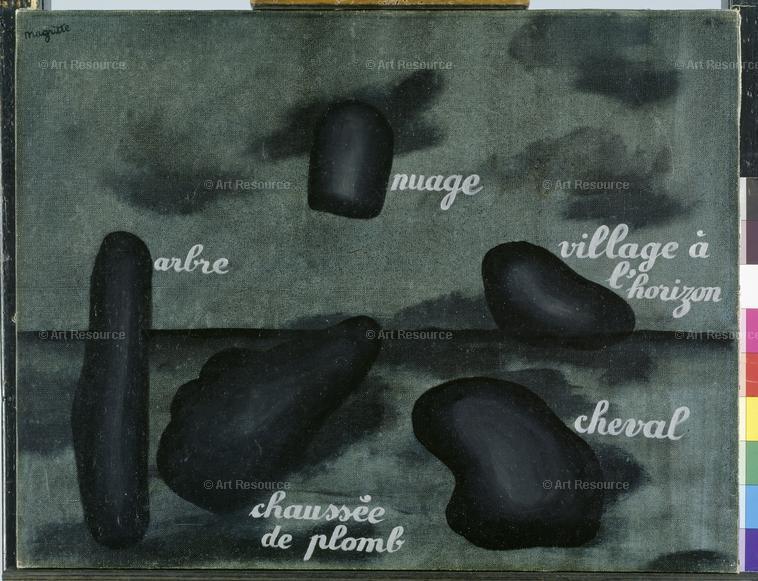 magritte
© Art Resource © Art Resource © Art Resource
nuage
© Art Resource © Art Resource
arbre
village à
l'horizon
© Art Resource © Art Resource © Art Resource
cheval
© Art Resource © Art Resource
chaussée
de plomb